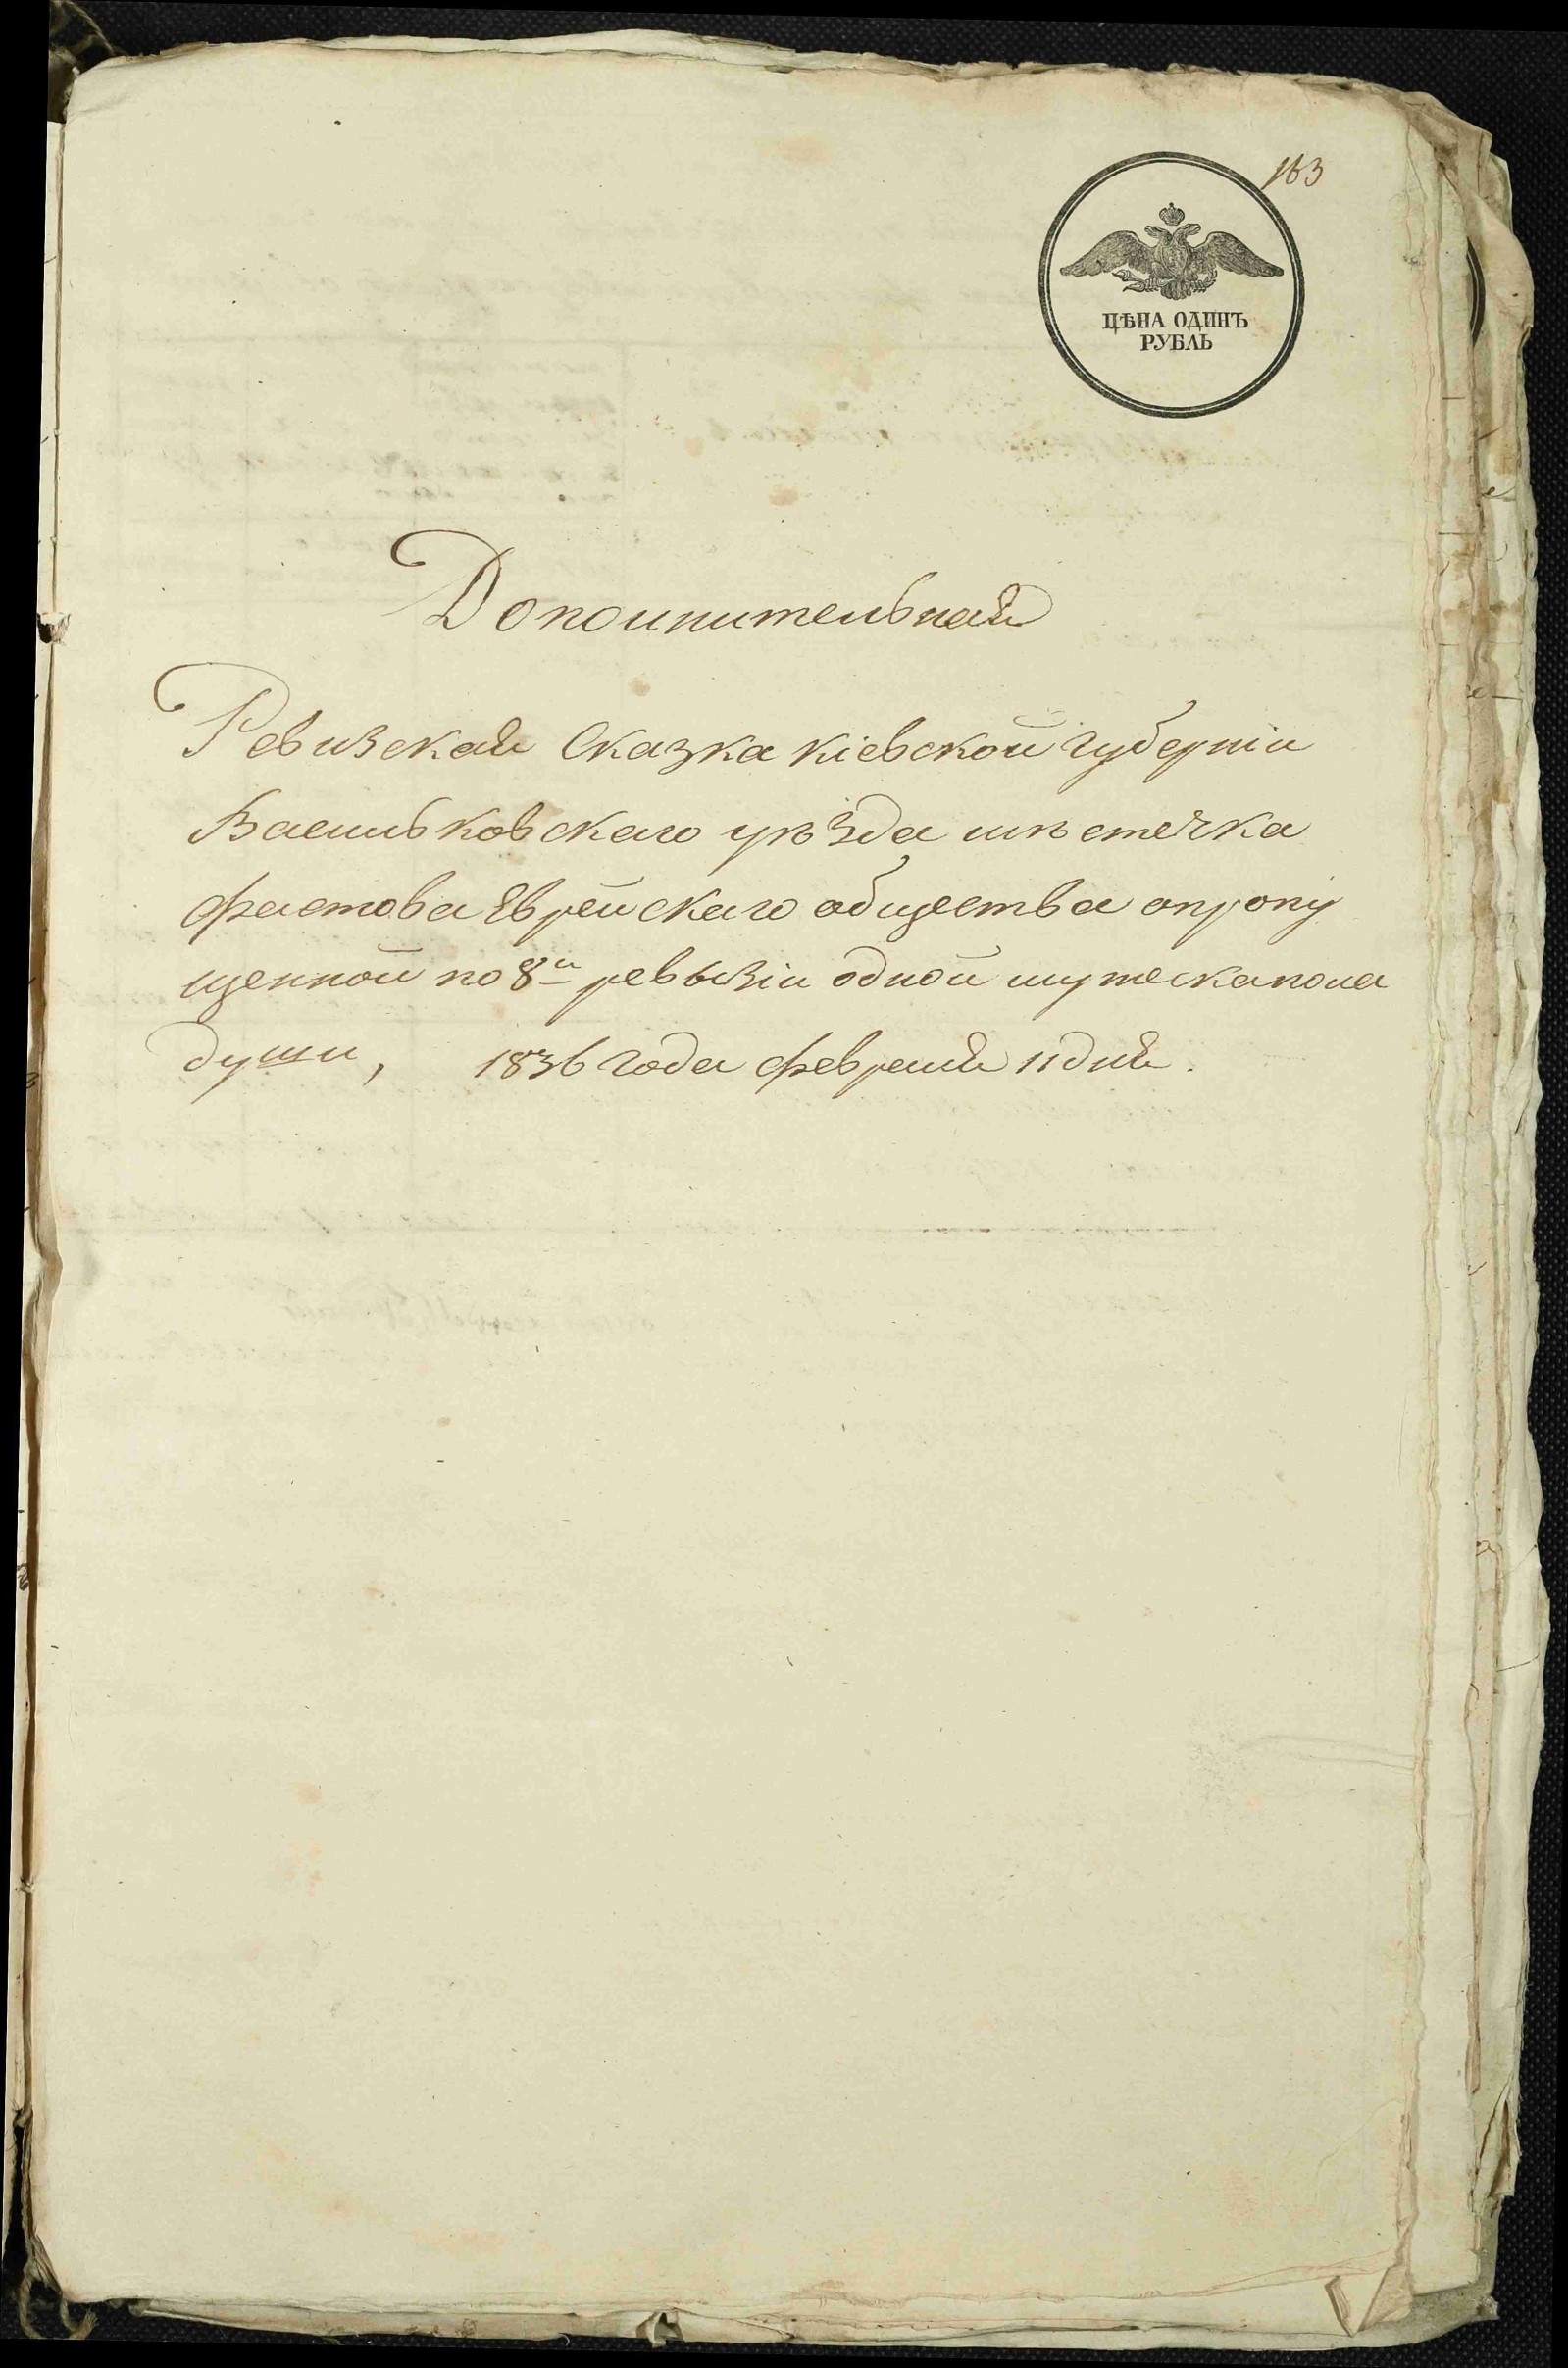 163
ЦѢНА ОДИНЪ
РУБЛЬ
Дополнительная
Ревизская Сказка кіевской губерніи
Васильковскаго уѣзда мѣстечка
фастова Еврейскаго общества опропу
щенной по 8й ревызіи одной мужескапола
души, 1836 года февраля 11 дня.